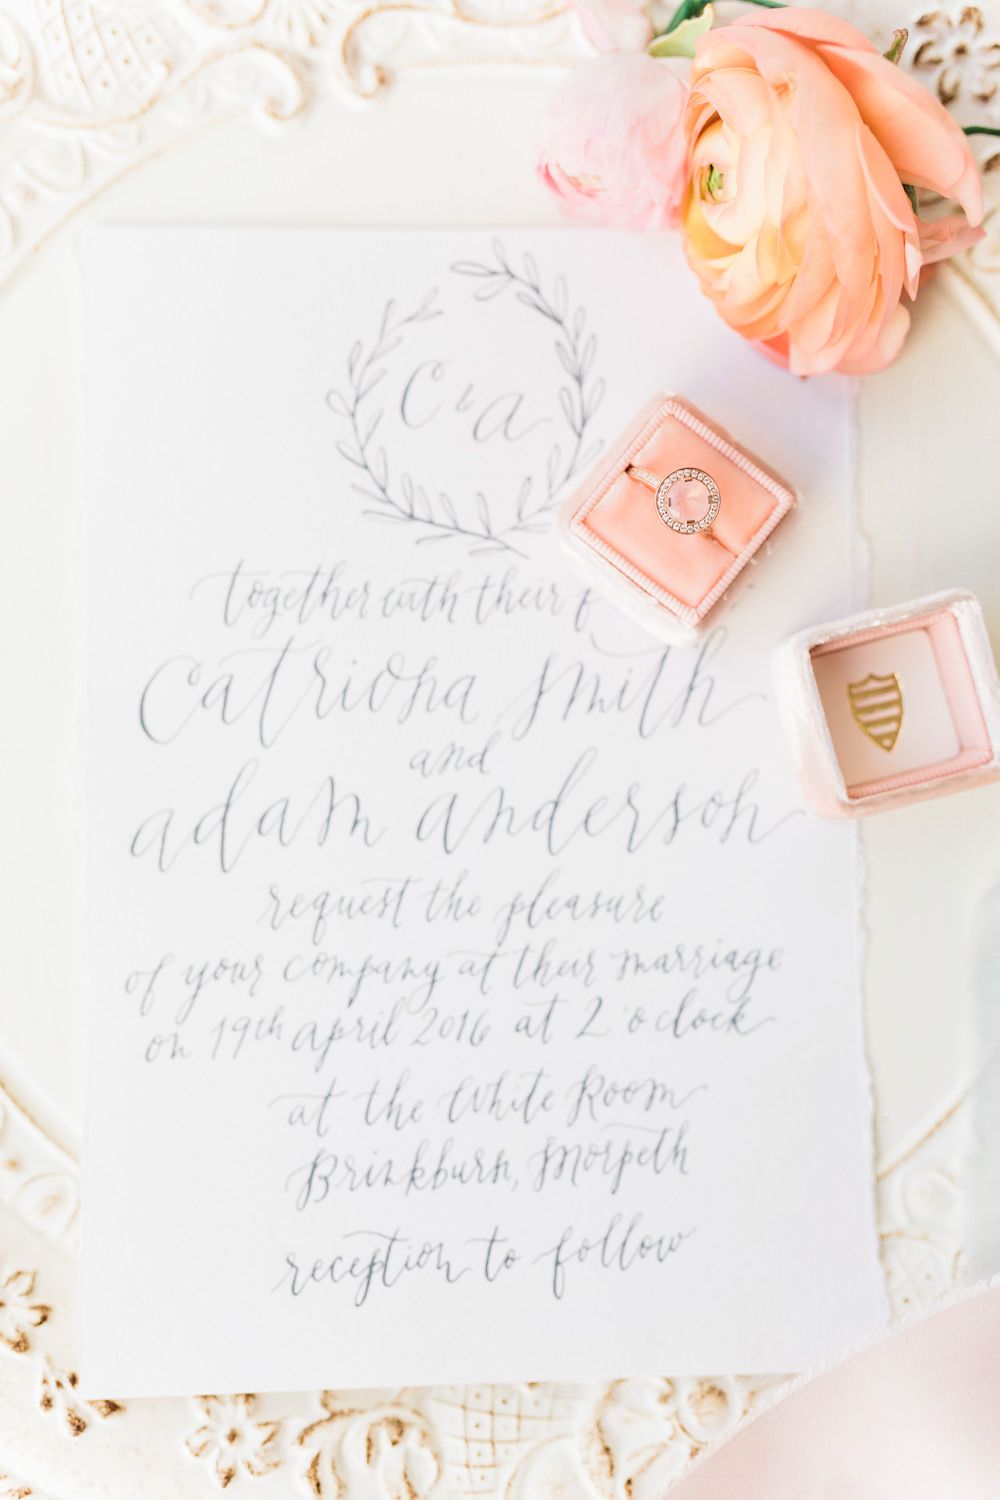 C & a
together with their f
Catriona Smith
and
adam anderson
request the pleasure
of your company at their marriage
on 19th april 2016 at 2 o'clock
at the White Room
Brinkburn, Morpeth
reception to follow